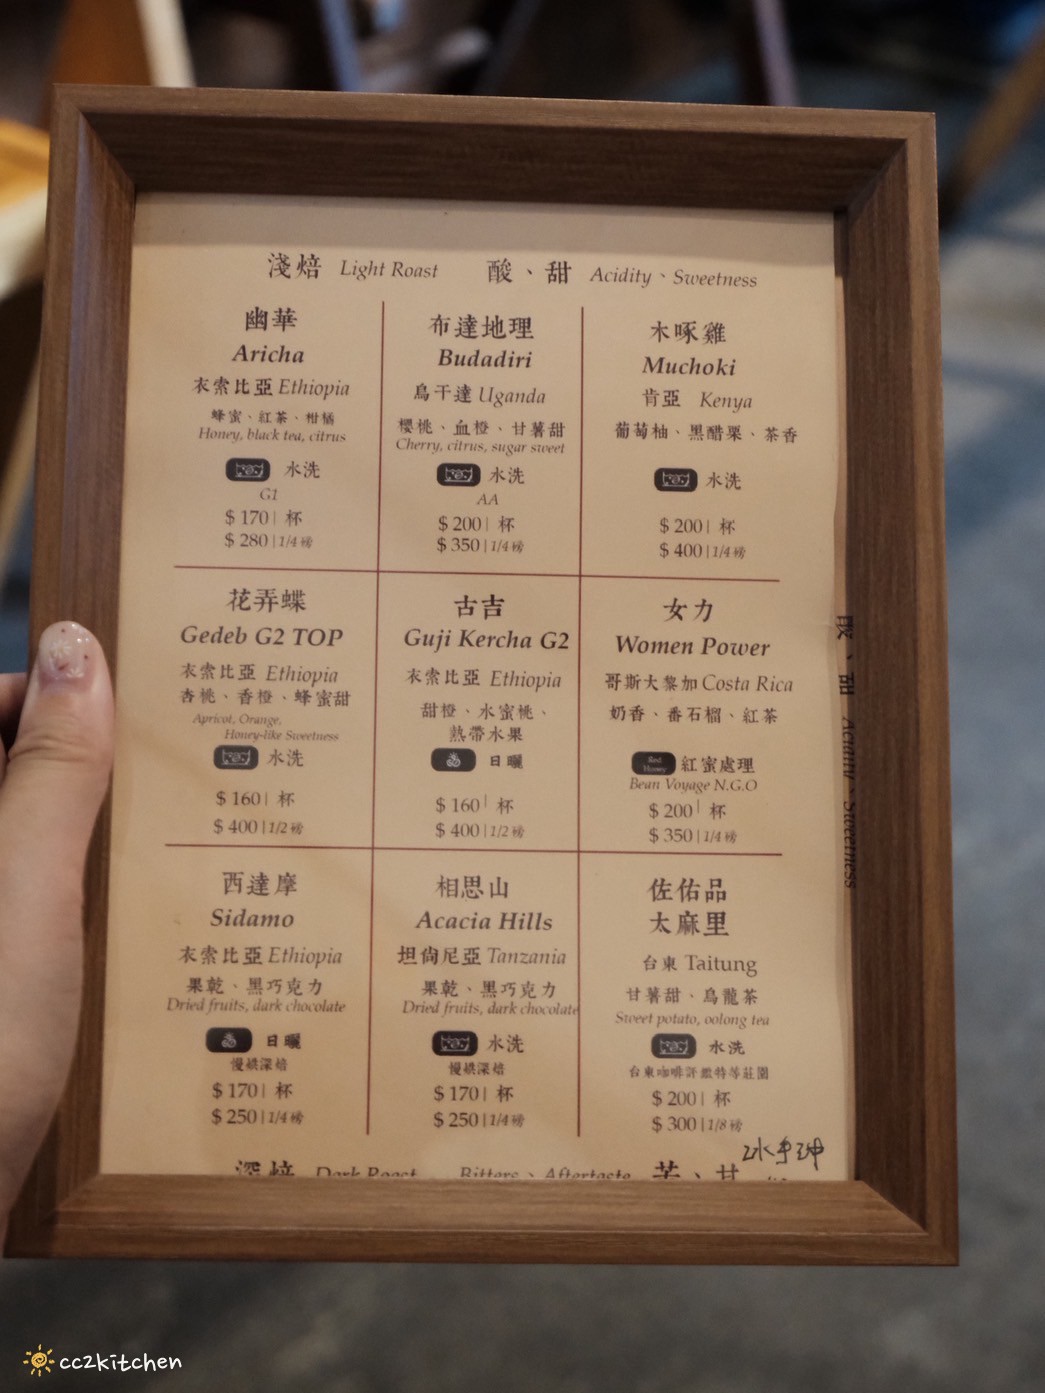 淺焙 Light Roast 酸、甜 Acidity、Sweetness
幽華
Aricha
衣索比亞 Ethiopia
蜂蜜、紅茶、柑橘
Honey, black tea, citrus
水洗
G1
$ 170 | 杯
$ 280 | 1/4 磅
布達地理
Budadiri
烏干達 Uganda
櫻桃、血橙、甘薯甜
Cherry, citrus, sugar sweet
水洗
AA
$ 200 | 杯
$ 350 | 1/4 磅
木啄雞
Muchoki
肯亞 Kenya
葡萄柚、黑醋栗、茶香
水洗
$ 200 | 杯
$ 400 | 1/4 磅
花弄蝶
Gedeb G2 TOP
衣索比亞 Ethiopia
杏桃、香橙、蜂蜜甜
Apricot, Orange,
Honey-like Sweetness
水洗
$ 160 | 杯
$ 400 | 1/2 磅
古吉
Guji Kercha G2
衣索比亞 Ethiopia
甜橙、水蜜桃、
熱帶水果
日曬
$ 160 | 杯
$ 400 | 1/2 磅
女力
Women Power
哥斯大黎加 Costa Rica
奶香、番石榴、紅茶
Red
Honey
紅蜜處理
Bean Voyage N.G.O
$ 200 | 杯
$ 350 | 1/4 磅
西達摩
Sidamo
衣索比亞 Ethiopia
果乾、黑巧克力
Dried fruits, dark chocolate
日曬
慢烘深焙
$ 170 | 杯
$ 250 | 1/4 磅
相思山
Acacia Hills
坦尚尼亞 Tanzania
果乾、黑巧克力
Dried fruits, dark chocolate
水洗
慢烘深焙
$ 170 | 杯
$ 250 | 1/4 磅
佐佑品
太麻里
台東 Taitung
甘薯甜、烏龍茶
Sweet potato, oolong tea
水洗
台東咖啡評鑑特等莊園
$ 200 | 杯
$ 300 | 1/8 磅
深焙 Dark Roast Bitters、Aftertaste 苦、甘
酸、甜 Acidity、Sweetness
cc2kitchen